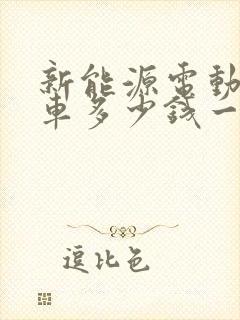 新能源電動
車多少錢一
逗比色